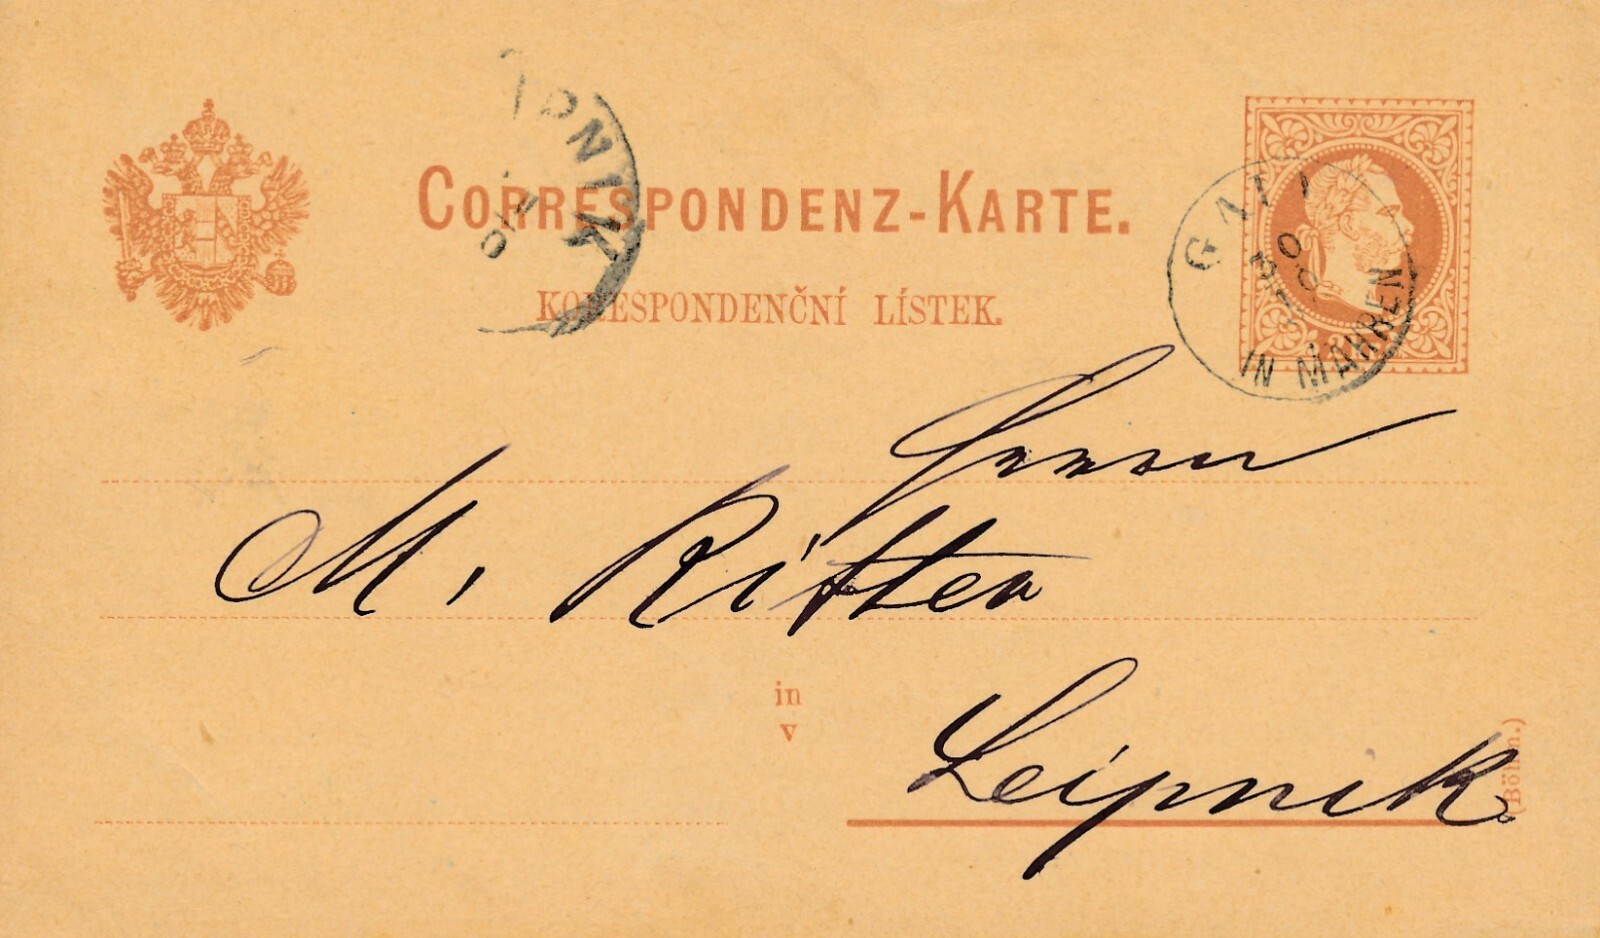 CORRESPONDENZ-KARTE.
KORESPONDENČNÍ LÍSTEK.
IPNIK
IN MÄHREN
Herrn
M. Ritter
in
v
Leipnik
(Böhm.)